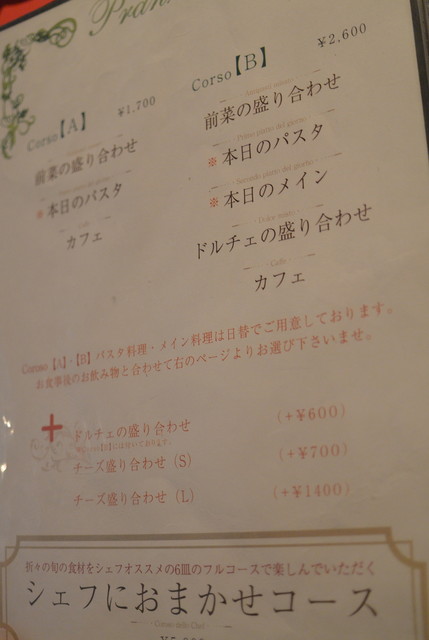 Corso【A】 ¥1,700
前菜の盛り合わせ
※本日のパスタ
カフェ
Corso【B】 ¥2,600
前菜の盛り合わせ
Primo piatto del giorno
※本日のパスタ
Secondo piatto del giorno
※本日のメイン
ドルチェの盛り合わせ
Caffe
カフェ
Corso【A】・【B】パスタ料理・メイン料理は日替でご用意しております。
お食事後のお飲み物と合わせて右のページよりお選び下さいませ。
+
ドルチェの盛り合わせ (+¥600)
チーズ盛り合わせ（S） (+¥700)
チーズ盛り合わせ（L） (+¥1400)
折々の旬の食材をシェフオススメの6皿のフルコースで楽しんでいただく
シェフにおまかせコース